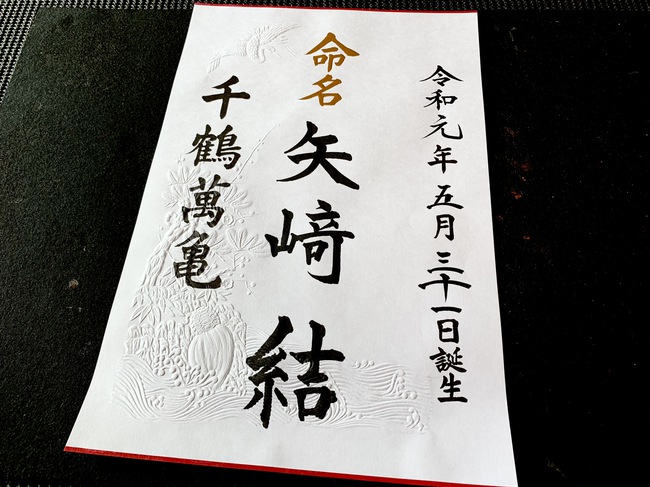 令和元年五月三十一日誕生
命名
矢﨑結
千鶴萬亀